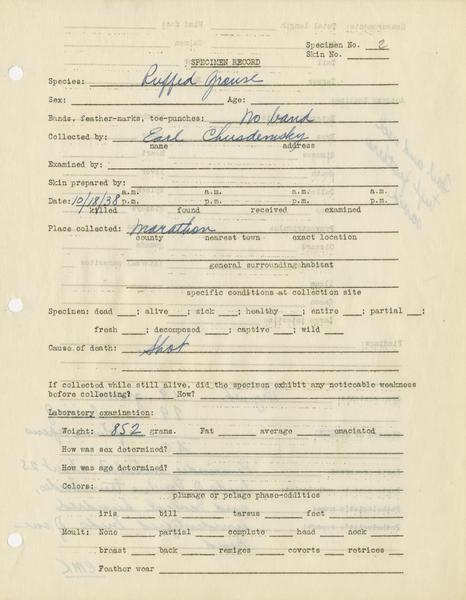 Specimen No. 2
Skin No.
SPECIMEN RECORD
Species: Ruffed Grouse
Sex: Age:
Bands, feather-marks, toe-punches: No band
Collected by: Earl
name address
Examined by:
Skin prepared by:
a.m. a.m. a.m. a.m.
Date: 10/18/38 p.m. p.m. p.m. p.m.
killed found received examined
Place collected: Marathon
county nearest town exact location
general surrounding habitat
specific conditions at collection site
Specimen: dead ; alive ; sick ; healthy ; entire ; partial ;
fresh ; decomposed ; captive ; wild
Cause of death: Shot
If collected while still alive, did the specimen exhibit any noticable weakness
before collecting? How?
Laboratory examination:
Weight: 852 grams. Fat average emaciated
How was sex determined?
How was age determined?
Colors:
plumage or pelage phase-oddities
iris bill tarsus foot
Moult: None partial complete head neck
breast back remiges coverts retrices
Feather wear